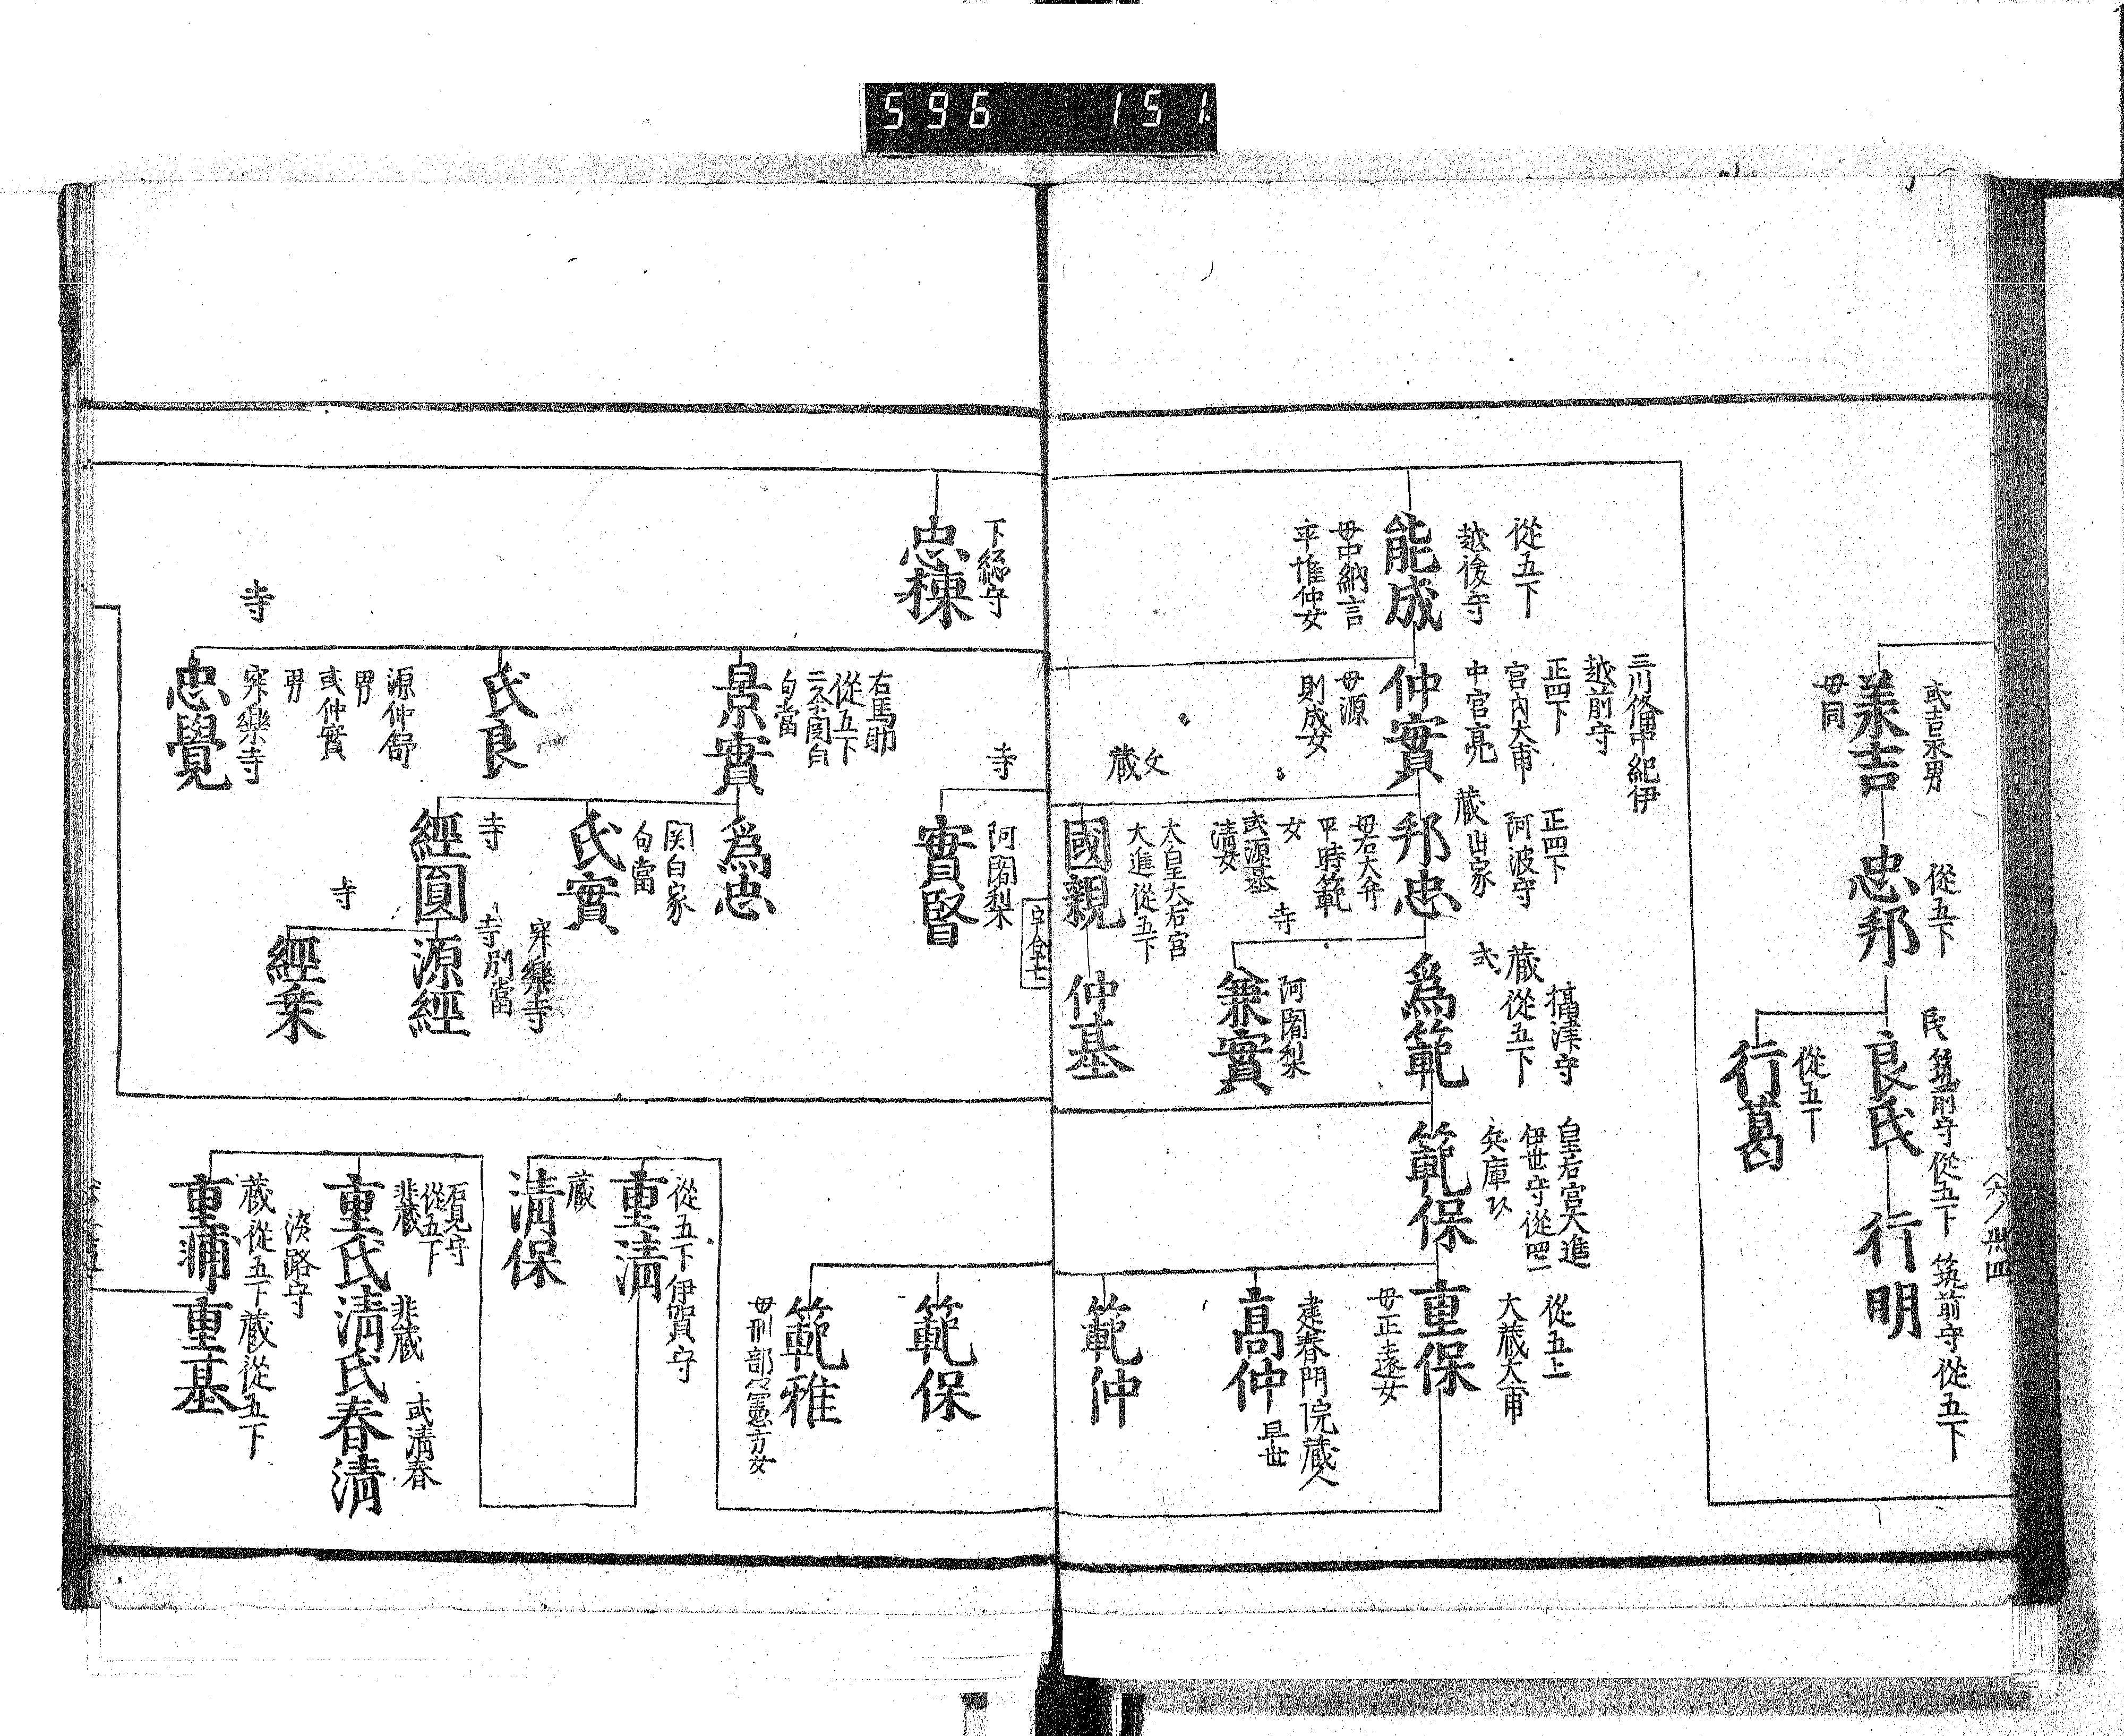 596 151.
卅四
或吉永男
義吉
母同
從五下
忠邦
民 筑前守從五下
良氏
從五下
行葛
筑前守從五下
行明
從五下
越後守
能成
母中納言
平惟仲女
三川備中紀伊
越前守
正四下
宮内大甫
中宮亮
仲實
母源
則成女
正四下
阿波守
藏出家
邦忠
母右大弁
平時範
女
或源基
清女
文
藏
太皇大后宮
大進從五下
國親
仲基
攝津守
藏從五下
式
爲範
寺
阿闍梨
兼實
皇后宮大進
伊世守從四
兵庫
範保
從五上
大藏大甫
重保
母正遠女
建春門院藏人
高仲
早世
範仲
下総守
忠棟
寺
阿闍梨
實賢
右馬助
從五下
二条関白
勾當
景實
爲忠
関白家
勾當
氏實
氏良
寺
經圓
穼樂寺
寺別當
源經
寺
經乗
源仲舒
男
或仲實
男
寺
穼樂寺
忠覺
範保
範雅
母刑部憲方女
從五下伊賀守
重清
藏
清保
石見守
從五下
非藏
重氏
非藏
清氏
或清春
春清
淡路守
藏從五下
重輔
藏從五下
重基